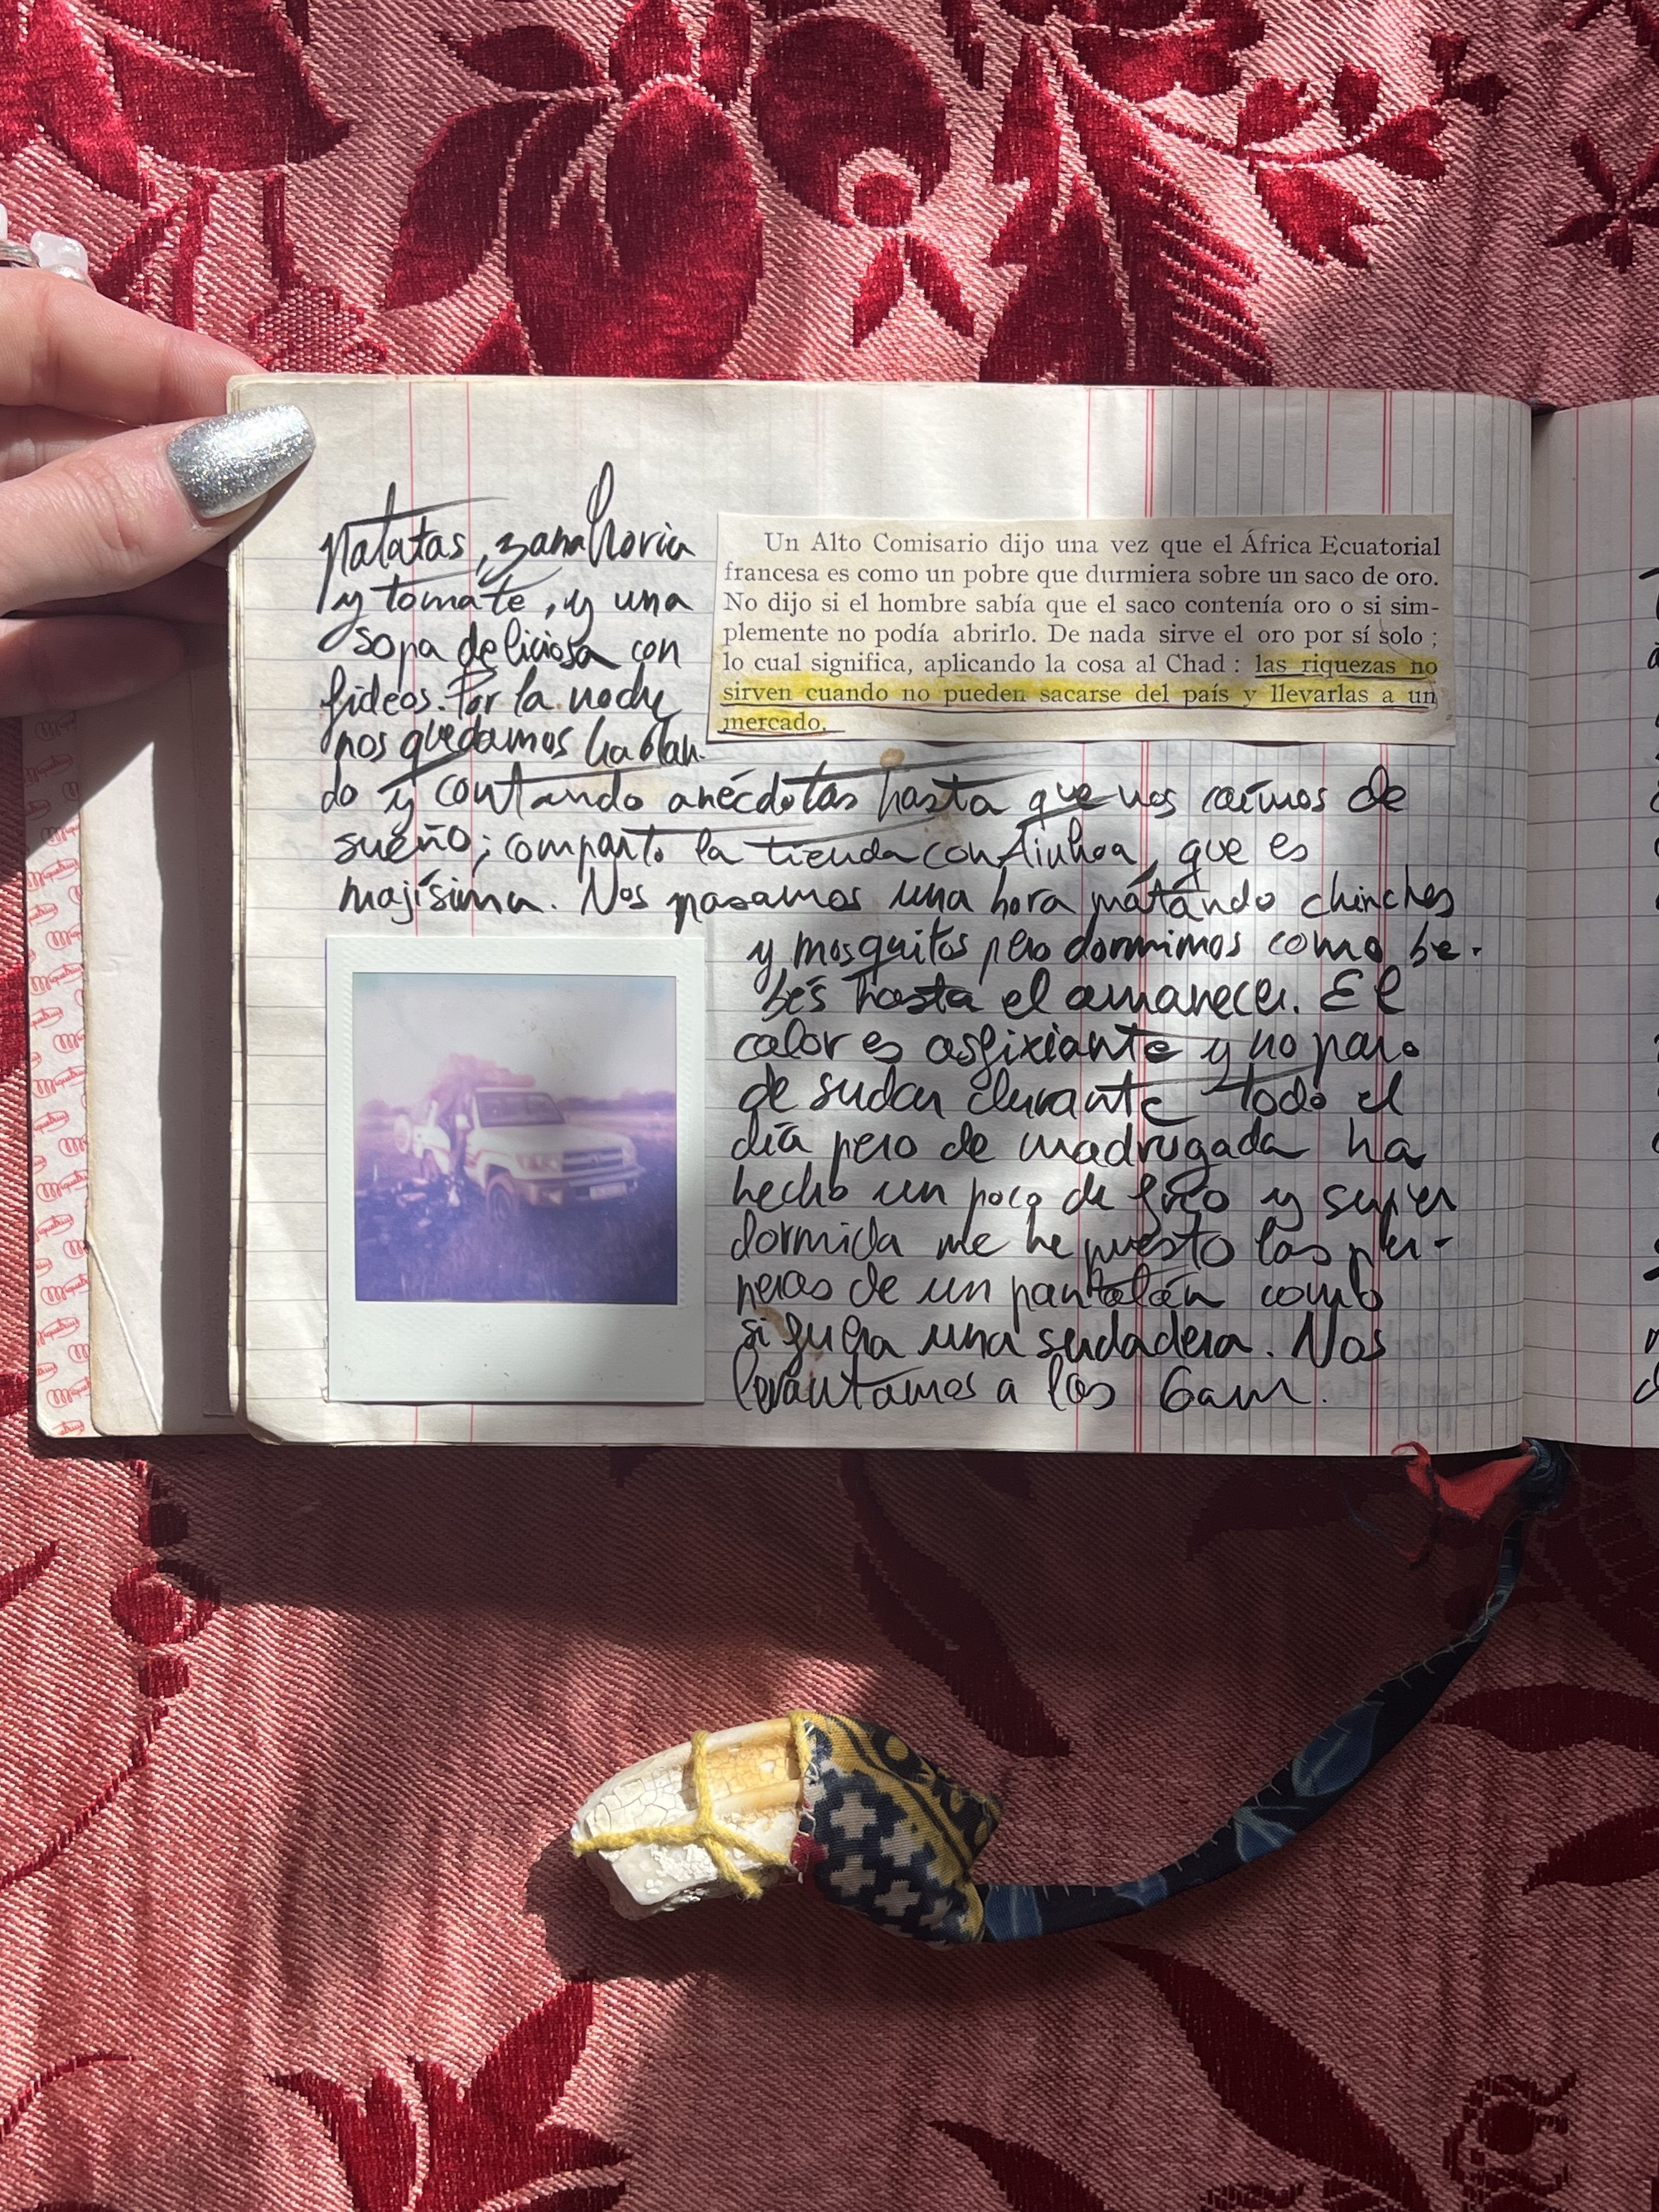 patatas, zanahoria
y tomate, y una
sopa deliciosa con
fideos. Por la noche
nos quedamos hablan-
do y contando anécdotas hasta que nos caímos de
sueño; comparto la tienda con Ainhoa, que es
majísima. Nos pasamos una hora matando chinches
y mosquitos pero dormimos como be-
bés hasta el amanecer. El
calor es asfixiante y no paro
de sudar durante todo el
día pero de madrugada ha
hecho un poco de frío y super
dormida me he puesto las per-
neras de un pantalón como
si fuera una sudadera. Nos
levantamos a las 6am.
Un Alto Comisario dijo una vez que el África Ecuatorial
francesa es como un pobre que durmiera sobre un saco de oro.
No dijo si el hombre sabía que el saco contenía oro o si sim-
plemente no podía abrirlo. De nada sirve el oro por sí solo ;
lo cual significa, aplicando la cosa al Chad : las riquezas no
sirven cuando no pueden sacarse del país y llevarlas a un
mercado.